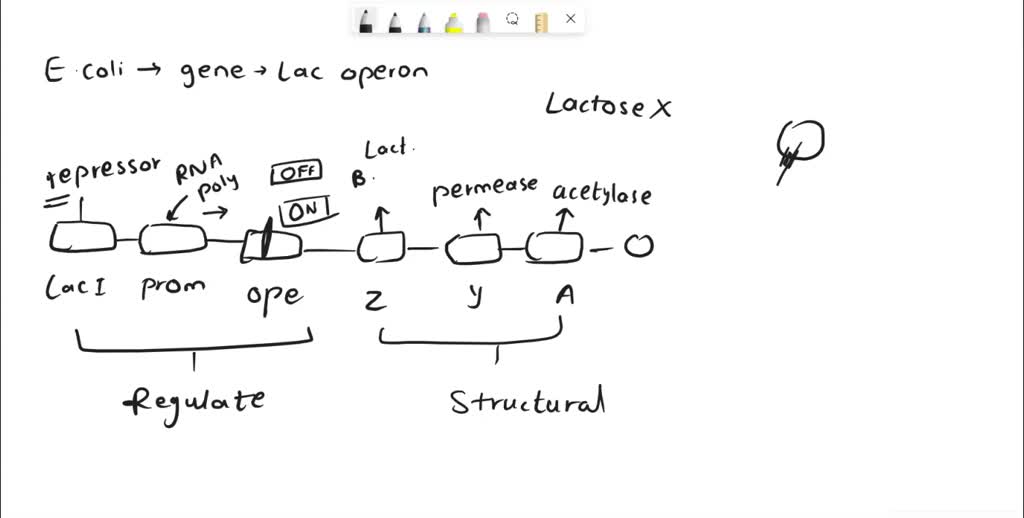 E. coli → gene → Lac operon
Lactose X
repressor
RNA
poly
→
OFF
ON
Lact.
B.
permease
acetylase
Lac I
prom
ope
Z
y
A
Regulate
Structural